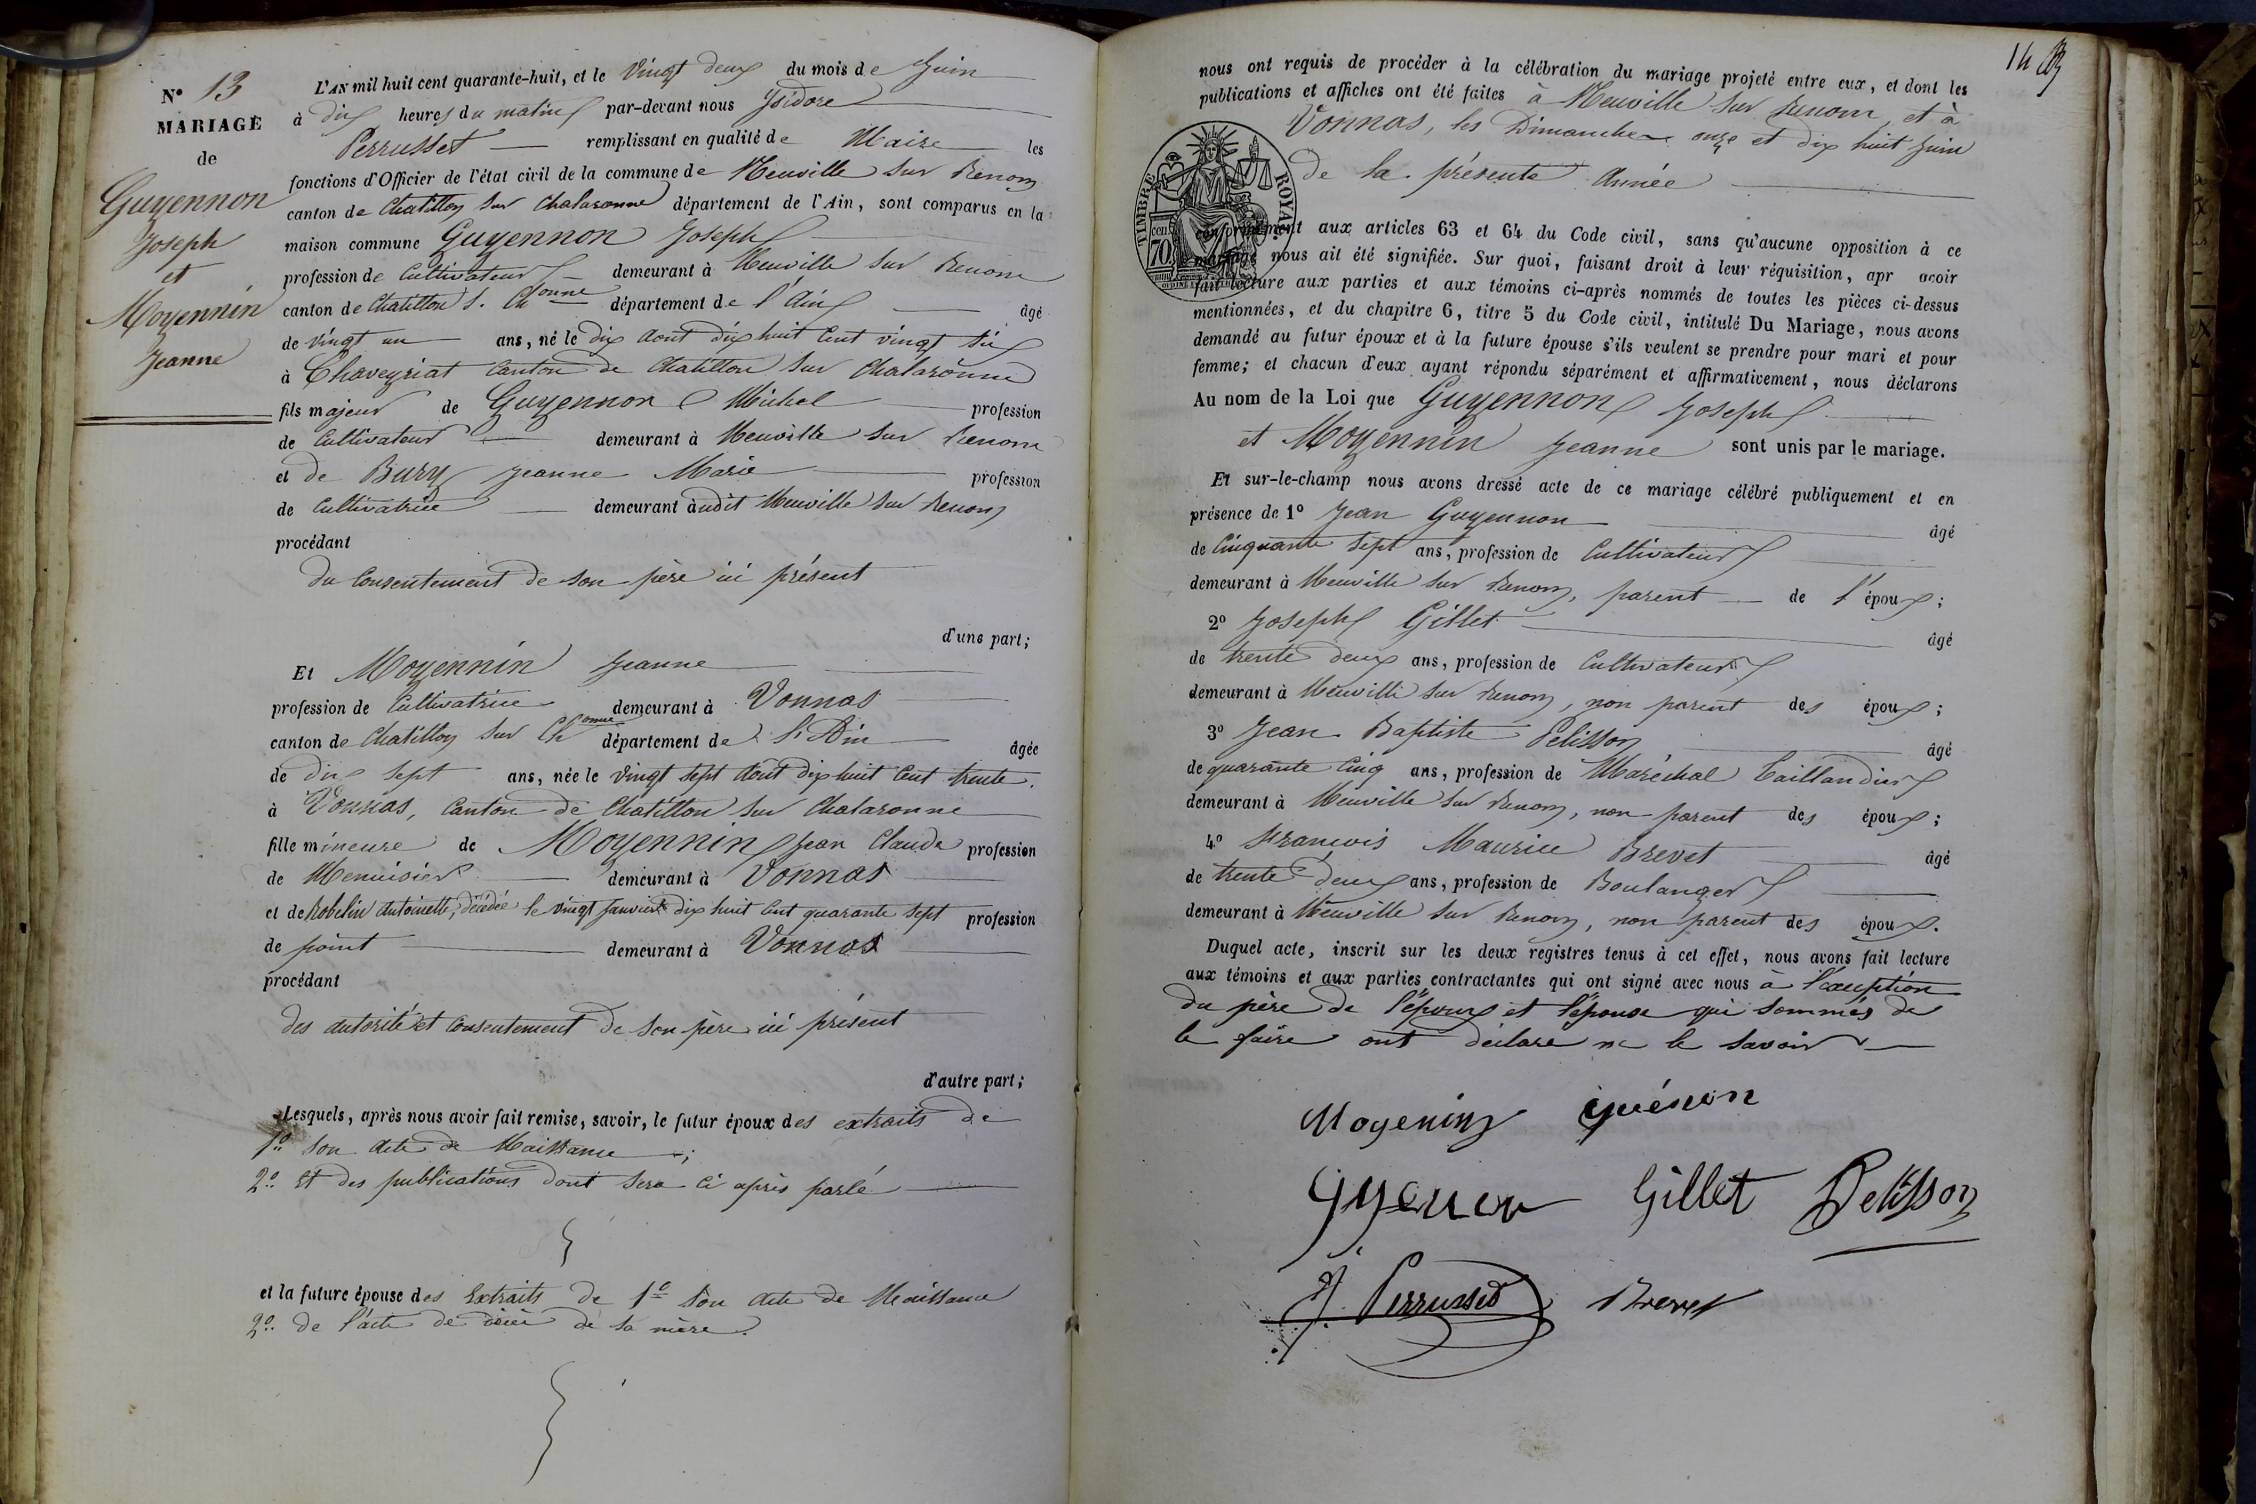 N° 13
MARIAGE
de
Guyennon
Joseph
et
Moyennin
Jeanne
L'AN mil huit cent quarante-huit, et le Vingt deux du mois de Juin
à dix heures du matin par-devant nous Ysidore
Perrusset remplissant en qualité de Maire les
fonctions d'Officier de l'état civil de la commune de Neuville sur Renom
canton de Chatillon sur Chalaronne département de l'Ain, sont comparus en la
maison commune Guyennon Joseph
profession de Cultivateur demeurant à Neuville sur Renom
canton de Chatillon s. Chonne département de l'Ain âgé
de vingt un ans, né le dix Aout dix huit Cent vingt six
à Chaveyriat Canton de Chatillon sur Chalaronne
fils majeur de Guyennon Michel profession
de Cultivateur demeurant à Neuville sur Renom
et de Bury Jeanne Marie profession
de Cultivatrice demeurant àudit Neuville sur Renom
procédant
du Consentement de son père ici présent
d'une part;
Et Moyennin Jeanne
profession de Cultivatrice demeurant à Vonnas
canton de Chatillon sur Chonne département de l'Ain âgée
de dix sept ans, née le vingt sept Aout dix huit Cent trente.
à Vonnas, Canton de Chatillon sur Chalaronne
fille mineure de Moyennin Jean Claude profession
de Menuisier demeurant à Vonnas
et de Robelin Antoinette, décédée le vingt Janvier dix huit Cent quarante sept profession
de point demeurant à Vonnas
procédant
des autorité et Consentement de son père ici présent
d'autre part;
Lesquels, après nous avoir fait remise, savoir, le futur époux des extraits de
1° son Acte de Naissance;
2° Et des publications dont sera ci après parlé
et la future épouse des Extraits de 1° son Acte de Naissance
2° de l'acte de décès de sa mère.
14
nous ont requis de procéder à la célébration du mariage projeté entre eux, et dont les
publications et affiches ont été faites à Neuville sur Renom, et à
Vonnas, les Dimanche onze et dix huit Juin
de la présente Année
TIMBRE ROYAL
70 cen
conformément aux articles 63 et 64 du Code civil, sans qu'aucune opposition à ce
mariage nous ait été signifiée. Sur quoi, faisant droit à leur réquisition, apr avoir
fait lecture aux parties et aux témoins ci-après nommés de toutes les pièces ci-dessus
mentionnées, et du chapitre 6, titre 5 du Code civil, intitulé Du Mariage, nous avons
demandé au futur époux et à la future épouse s'ils veulent se prendre pour mari et pour
femme; et chacun d'eux ayant répondu séparément et affirmativement, nous déclarons
Au nom de la Loi que Guyennon Joseph
et Moyennin Jeanne sont unis par le mariage.
Et sur-le-champ nous avons dressé acte de ce mariage célébré publiquement et en
présence de 1° Jean Guyennon âgé
de Cinquante Sept ans, profession de Cultivateur
demeurant à Neuville sur Renom, parent de l'époux;
2° Joseph Gillet âgé
de trente deux ans, profession de Cultivateur
demeurant à Neuville sur Renom, non parent des époux;
3° Jean Baptiste Pelisson âgé
de quarante Cinq ans, profession de Maréchal Taillandier
demeurant à Neuville sur Renom, non parent des époux;
4° Francois Maurice Brevet âgé
de trente deux ans, profession de Boulanger
demeurant à Neuville sur Renom, non parent des époux.
Duquel acte, inscrit sur les deux registres tenus à cet effet, nous avons fait lecture
aux témoins et aux parties contractantes qui ont signé avec nous à l'exception
du père de l'époux et l'épouse qui sommés de
le faire ont déclaré ne le savoir
Moyenin Guénon
Gyenon Gillet Pelisson
Y. Perrusset Brevet